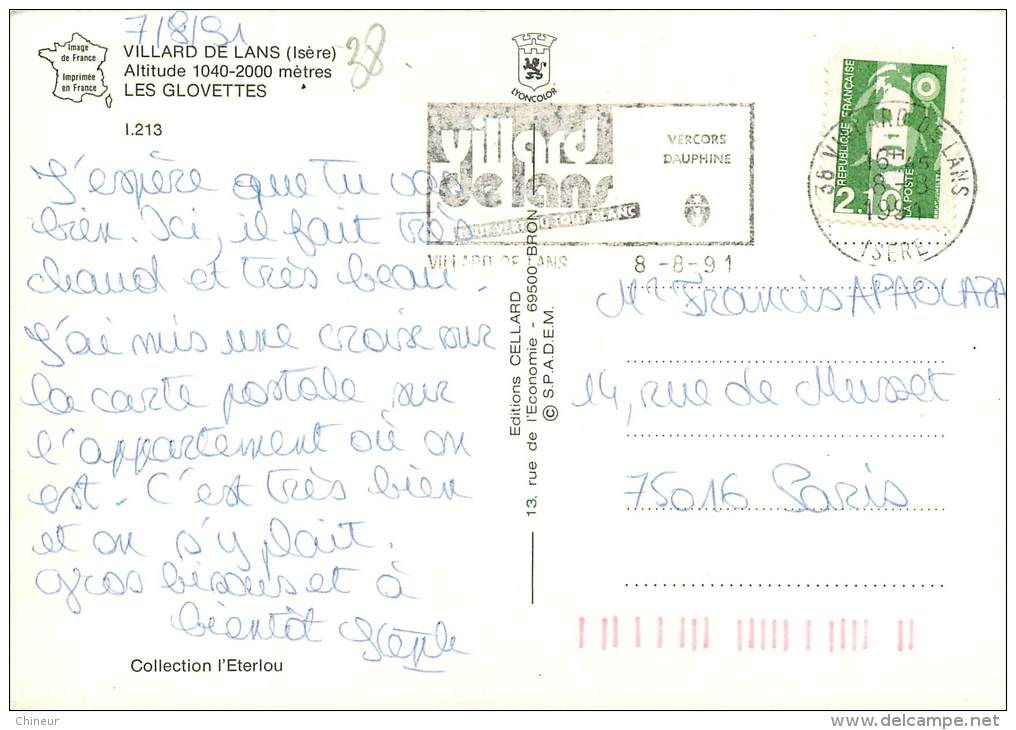 7/8/91
38
Image
de France
Imprimée
en France
VILLARD DE LANS (Isère)
Altitude 1040-2000 mètres
LES GLOVETTES
I.213
LYONCOLOR
J'espère que tu vas
bien. Ici, il fait très
chaud et très beau.
J'ai mis une croix sur
la carte postale sur
l'appartement où on
est. C'est très bien
et on s'y plait.
Gros bisous et à
bientôt
Collection l'Eterlou
villard
de lans
TOUT VERT OU TOUT BLANC
VERCORS
DAUPHINE
VILLARD DE LANS 8-8-91
Editions CELLARD
13, rue de l'Economie - 69500 BRON
© S.P.A.D.E.M.
REPUBLIQUE FRANÇAISE
2.10
LA POSTE
38 VILLARD DE LANS
16H45
8-8
1991
ISERE
Mr Francis APAOLAZA
14, rue de Musset
75016 Paris
Chineur
delcampe.net